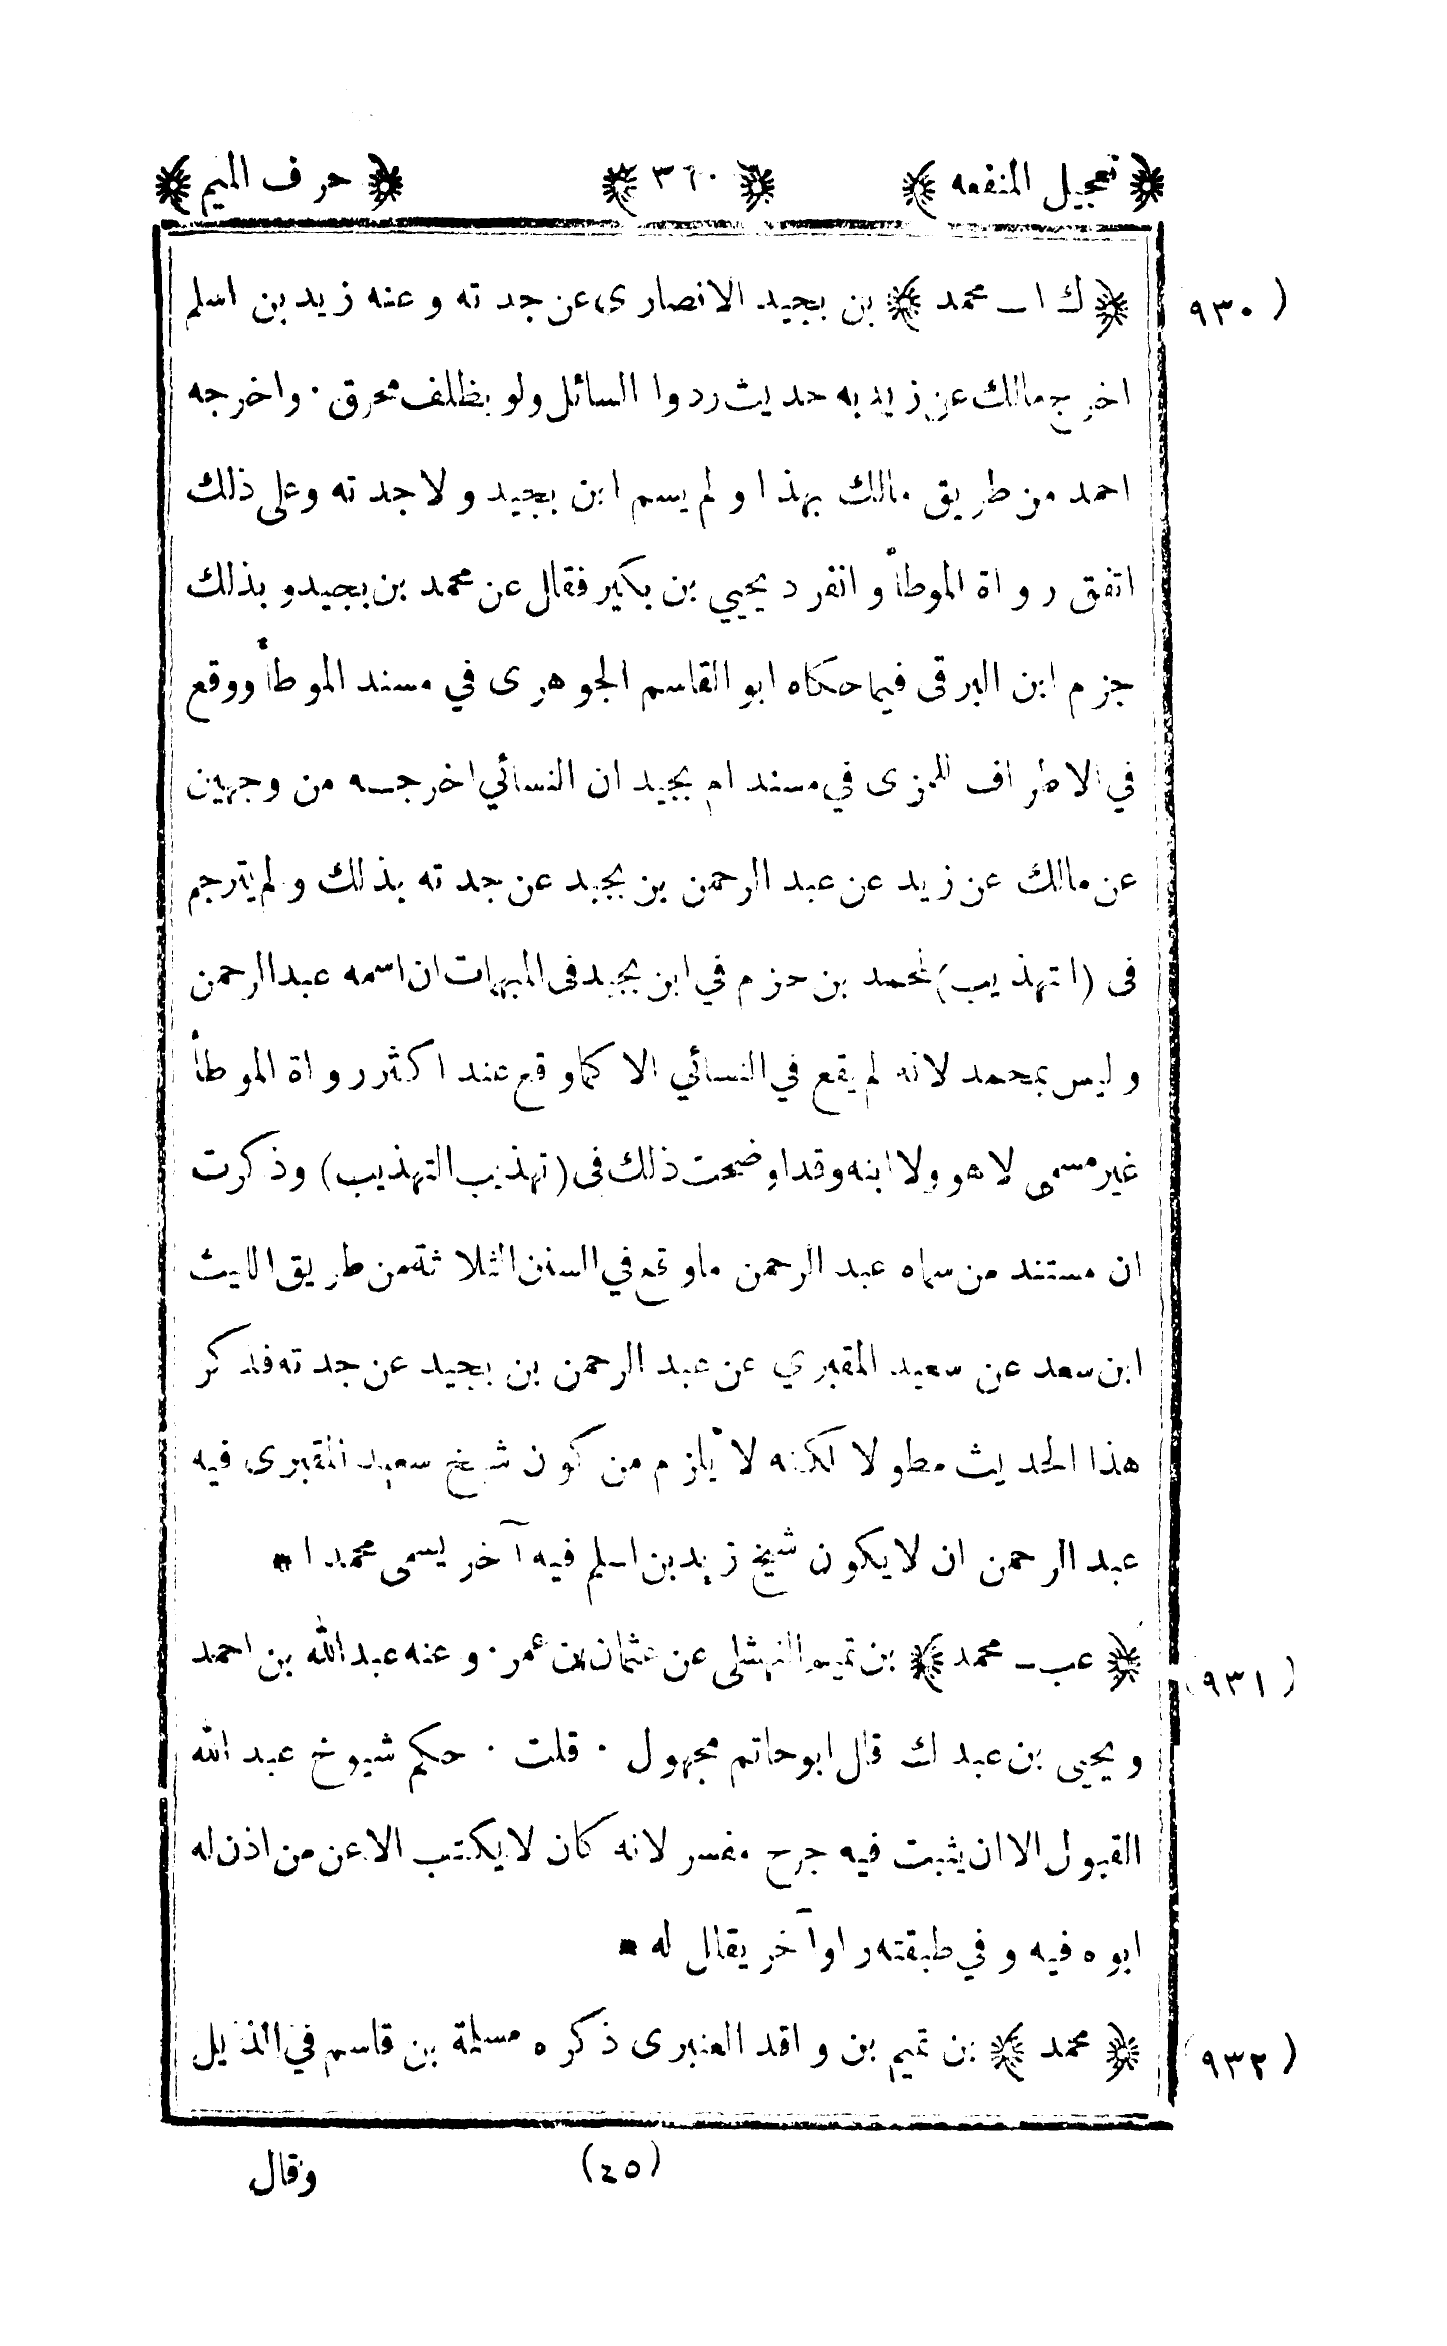 ﴿ تعجيل المنفعه ﴾ ﴿ ٣٦٠ ﴾ ﴿ حرف الميم ﴾
(٩٣٠) ﴿ ك ا ـ محمد ﴾ بن بجيد الانصارى عن جدته وعنه زيد بن اسلم
اخرج مالك عن زيد به حديث ردوا السائل ولو بظلف محرق · واخرجه
احمد من طريق مالك بهذا ولم يسم ابن بجيد ولا جدته وعلى ذلك
اتفق رواة الموطأ وانفرد يحيي بن بكير فقال عن محمد بن بجيد وبذلك
جزم ابن البرقى فيما حكاه ابو القاسم الجوهرى في مسند الموطأ ووقع
في الاطراف للمزى في مسند ام بجيد ان النسائي اخرجه من وجهين
عن مالك عن زيد عن عبد الرحمن بن بجيد عن جدته بذلك ولم يترجم
فى (التهذيب) لمحمد بن حزم في ابن بجيد فى المبهمات ان اسمه عبد الرحمن
وليس بمحمد لانه لم يقع في النسائي الا كما وقع عند اكثر رواة الموطأ
غير مسمى لا هو ولا ابنه وقد اوضحت ذلك فى (تهذيب التهذيب) وذكرت
ان مستند من سماه عبد الرحمن ما وقع في السنن الثلاثة من طريق الليث
ابن سعد عن سعيد المقبري عن عبد الرحمن بن بجيد عن جدته فذكر
هذا الحديث مطولا لكنه لا يلزم من كون شيخ سعيد المقبرى فيه
عبد الرحمن ان لا يكون شيخ زيد بن اسلم فيه آخر يسمى محمدا *
(٩٣١) ﴿ عب ـ محمد ﴾ بن تميم النهشلى عن عثمان بن عمر · وعنه عبد الله بن احمد
ويحيى بن عبدك قال ابو حاتم مجهول · قلت · حكم شيوخ عبد الله
القبول الا ان يثبت فيه جرح مفسر لانه كان لا يكتب الا عن من اذن له
ابوه فيه وفي طبقته راو آخر يقال له *
(٩٣٢) ﴿ محمد ﴾ بن تميم بن واقد العنبرى ذكره مسلمة بن قاسم في الذيل
(٤٥) وقال